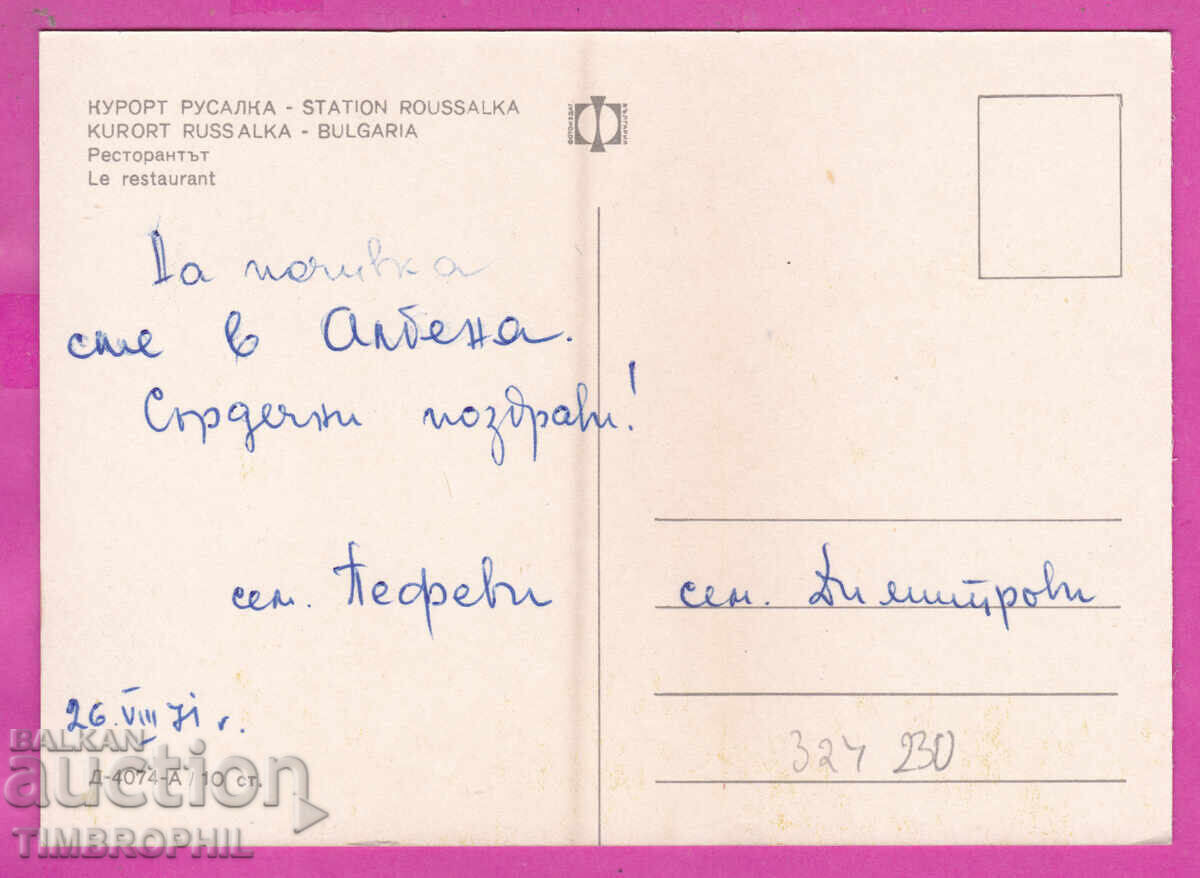 КУРОРТ РУСАЛКА - STATION ROUSSALKA
KURORT RUSSALKA - BULGARIA
Ресторантът
Le restaurant
ФОТОИЗДАТ
БЪЛГАРИЯ
На почивка
сме в Албена.
Сърдечни поздрави!
сем. Пефеви
26. VIII 71 г.
Д-4074-А / 10 ст.
сем. Димитрови
324 230
BALKAN
auction
TIMBROPHIL